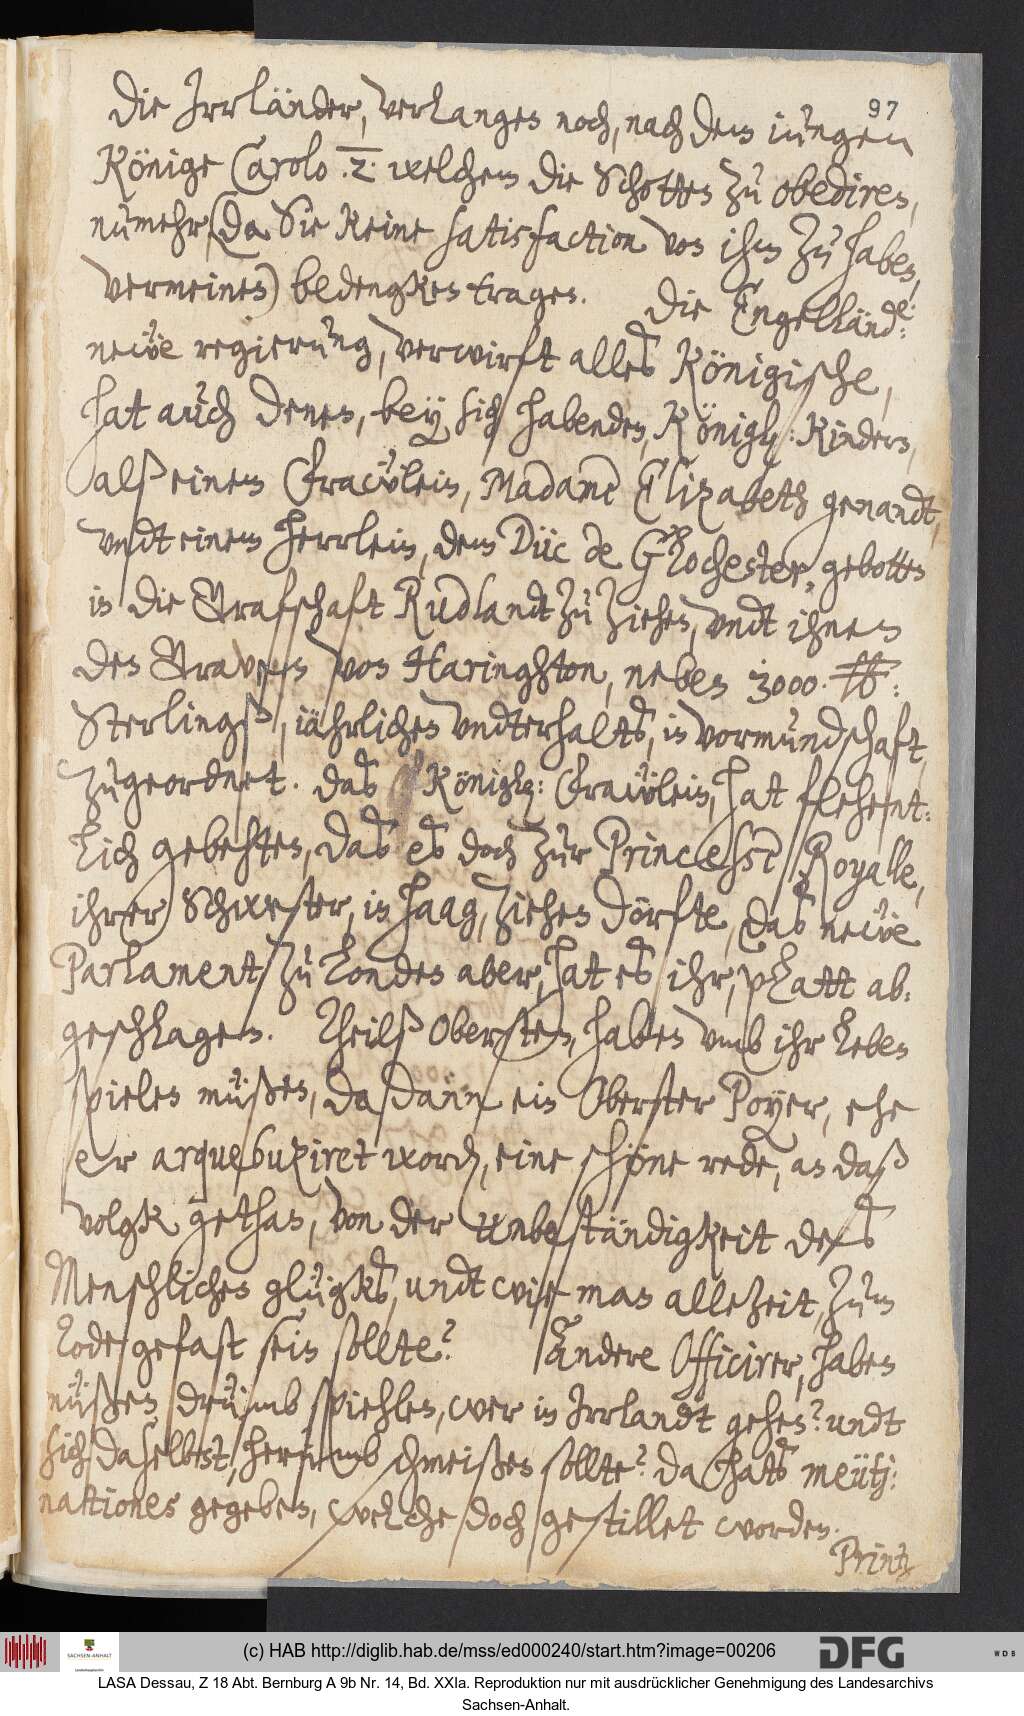 97
die Irrländer, verlangen noch, nach dem iungen
Könige Carolo .2. welchem die Schotten zu obediren,
numehr (da Sie keine satisfaction von ihm zu haben,
vermeinen) bedengken tragen. Die Engelländ:
neẅe regierung, verwirft alles Königische,
hat auch denen, bey sich habenden, Königl: Kindern,
alß einem Fraẅlein, Madame Elizabeth genandt,
undt einem Herrlein, dem Düc de Glochester, gebotten
in die Grafschaft Rudlandt zu ziehen, undt ihnen
den Graven von Haringhton, neben 3000. ℔:
Sterlingß, iährlichen undterhalts, in vormundschaft,
zugeordnet. Das Königl: Fraẅlein, hat flehent-
lich gebehten, das es doch zur Princesse Royalle,
ihrer Schwester, in Haag, ziehen dörfte, das neẅe
Parlament zu London aber, hat es ihr, platt ab-
geschlagen. Theilß Obersten, haben umb ihr Leben
spielen müßen, da dann ein Oberster Poyer, ehe
er arquebuziret word, eine schöne rede, an daß
volgk gethan, von der Unbeständigkeit des
Menschlichen glügks, undt wie man allezeit, zum
Tode gefast sein sollte? Andere Officirer, haben
müßen drümb spiehlen, wer in Irrlandt gehen? undt
sich daselbst, herümb schmeißen sollte? da hats meütj-
nationes gegeben, welche doch gestillet worden.
Printz
(c) HAB http://diglib.hab.de/mss/ed000240/start.htm?image=00206
SACHSEN-ANHALT
DFG
WDB
LASA Dessau, Z 18 Abt. Bernburg A 9b Nr. 14, Bd. XXIa. Reproduktion nur mit ausdrücklicher Genehmigung des Landesarchivs
Sachsen-Anhalt.